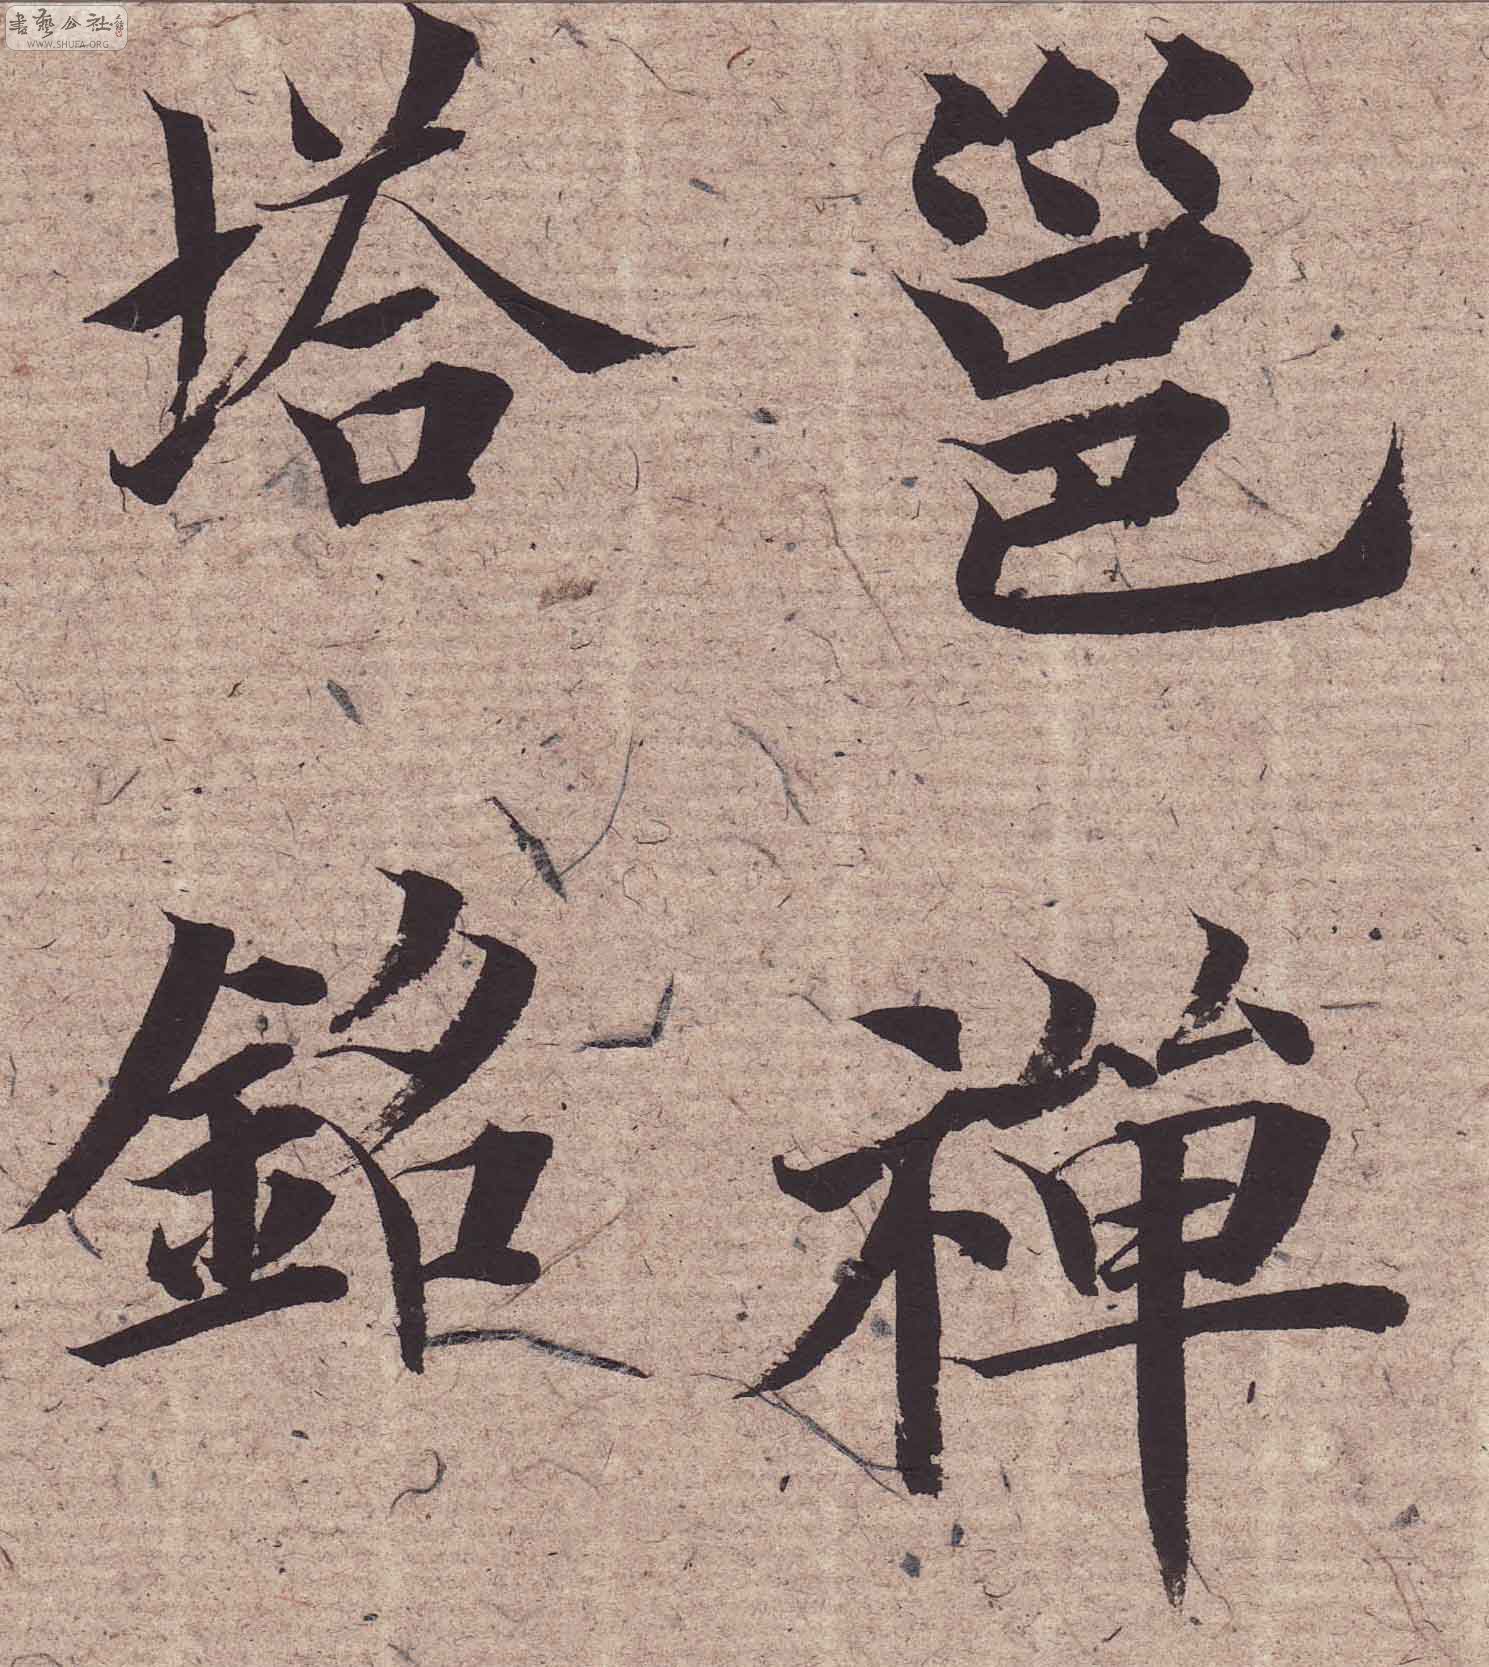 邕禪
塔銘
書藝公社
WWW.SHUFA.ORG